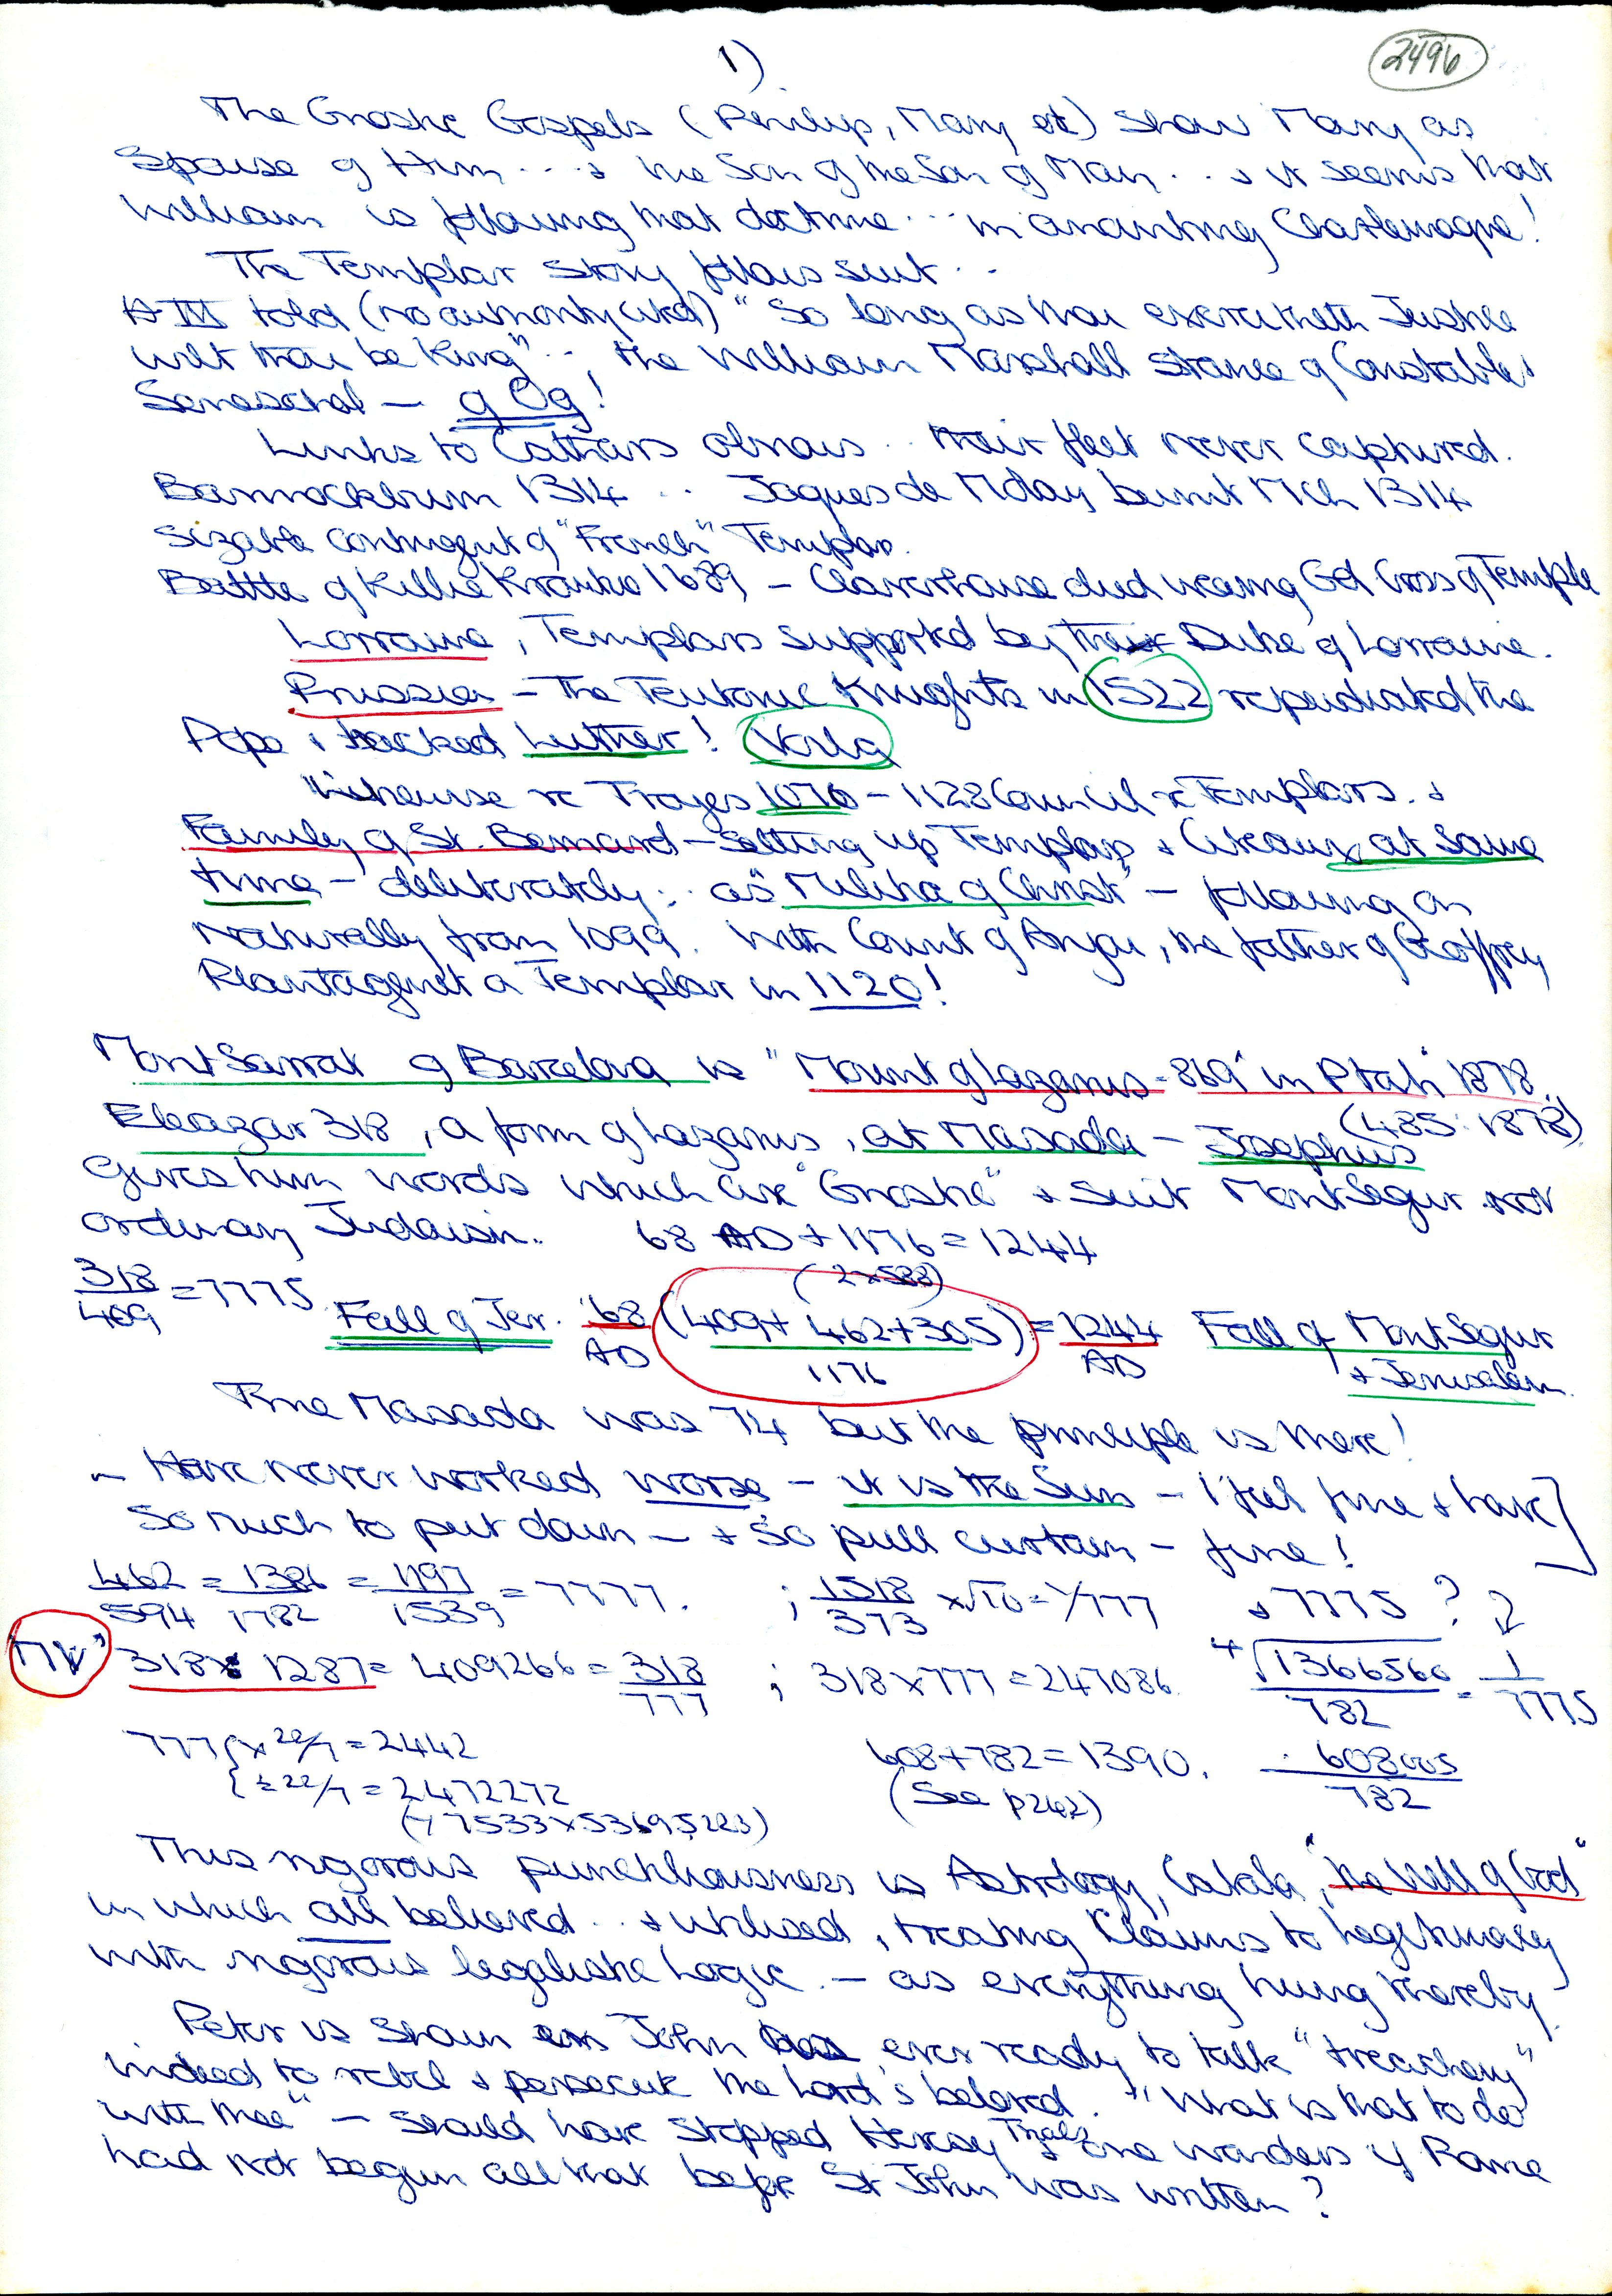 1)
2496
The Gnostic Gospels (Philip, Mary etc) show Mary as
Spouse of Him... & the Son of the Son of Man... & it seems that
William is following that doctrine... in anointing Charlemagne!
The Templar story follows suit..
A-IV told (no authority cited) "So long as thou exerciseth Justice
wilt thou be King"..., the William Marshall stance of Constable &
Seneschal — of Og!
Links to Cathars obvious.. their fleet never captured.
Bannockburn 1314 .. Jaques de Molay burnt Mch 1314
Sizable contingent of "French" Templars.
Battle of Killie Krankie 1689 – Claverhouse died wearing Gd Cross of Temple
Lorraine, Templars supported by their Duke of Lorraine.
Prussia – The Teutonic Knights in 1522 repudiated the
Pope & backed Luther!
Likewise re Troyes 1070 – 1128 Council re Templars. &
Family of St. Bernard – setting up Templars & Citeaux at same
time – deliberately: as "Militia of Christ" – following on
naturally from 1099. With Count of Anjou, the father of Geoffrey
Plantagenet a Templar in 1120!
MontSerrat of Barcelona is "Mount of Lazarus = 869" in Ptah 1878.
(485:1878)
Eleazar 318, a form of Lazarus, at Masada – Josephus
gives him words which are "Gnostic" & suit MontSegur not
ordinary Judaism. 68 AD + 1176 = 1244
(2x588)
318/409 = 7775. Fall of Jer. 68 AD (409 + 462 + 305) = 1244 AD Fall of MontSegur
1176 & Jerusalem.
True Masada was 74 but the principle is there!
– Have never worked worse – it is the Sun – I feel fine & have
so much to put down – & so pull curtain – fine!
462/594 = 1386/1782 = 1197/1539 = 7777. ; 1518/373 x√10 = 1/777 & 7775 ?
318 x 1287 = 409266 = 318/777 ; 318 x 777 = 247086. 4√1366560/782 = 1/7775
777 { x 22/7 = 2442 608 + 782 = 1390. 608005/782
{ ÷ 22/7 = 2472272 (See p242)
(√7533 x 53695223)
This rigorous punctiliousness is Astrology, Cabala, "the Will of God"
in which all believed.. & utilised, treating Claims to Legitimacy
with rigorous legalistic Logic. – as everything hung thereby.
Peter is shown in John as ever ready to talk "treachery"
indeed to rebel & persecute the Lord's beloved. & "What is that to do
with thee" – should have stopped Heresy Trials one wonders if Rome
had not begun all that before St John was written?